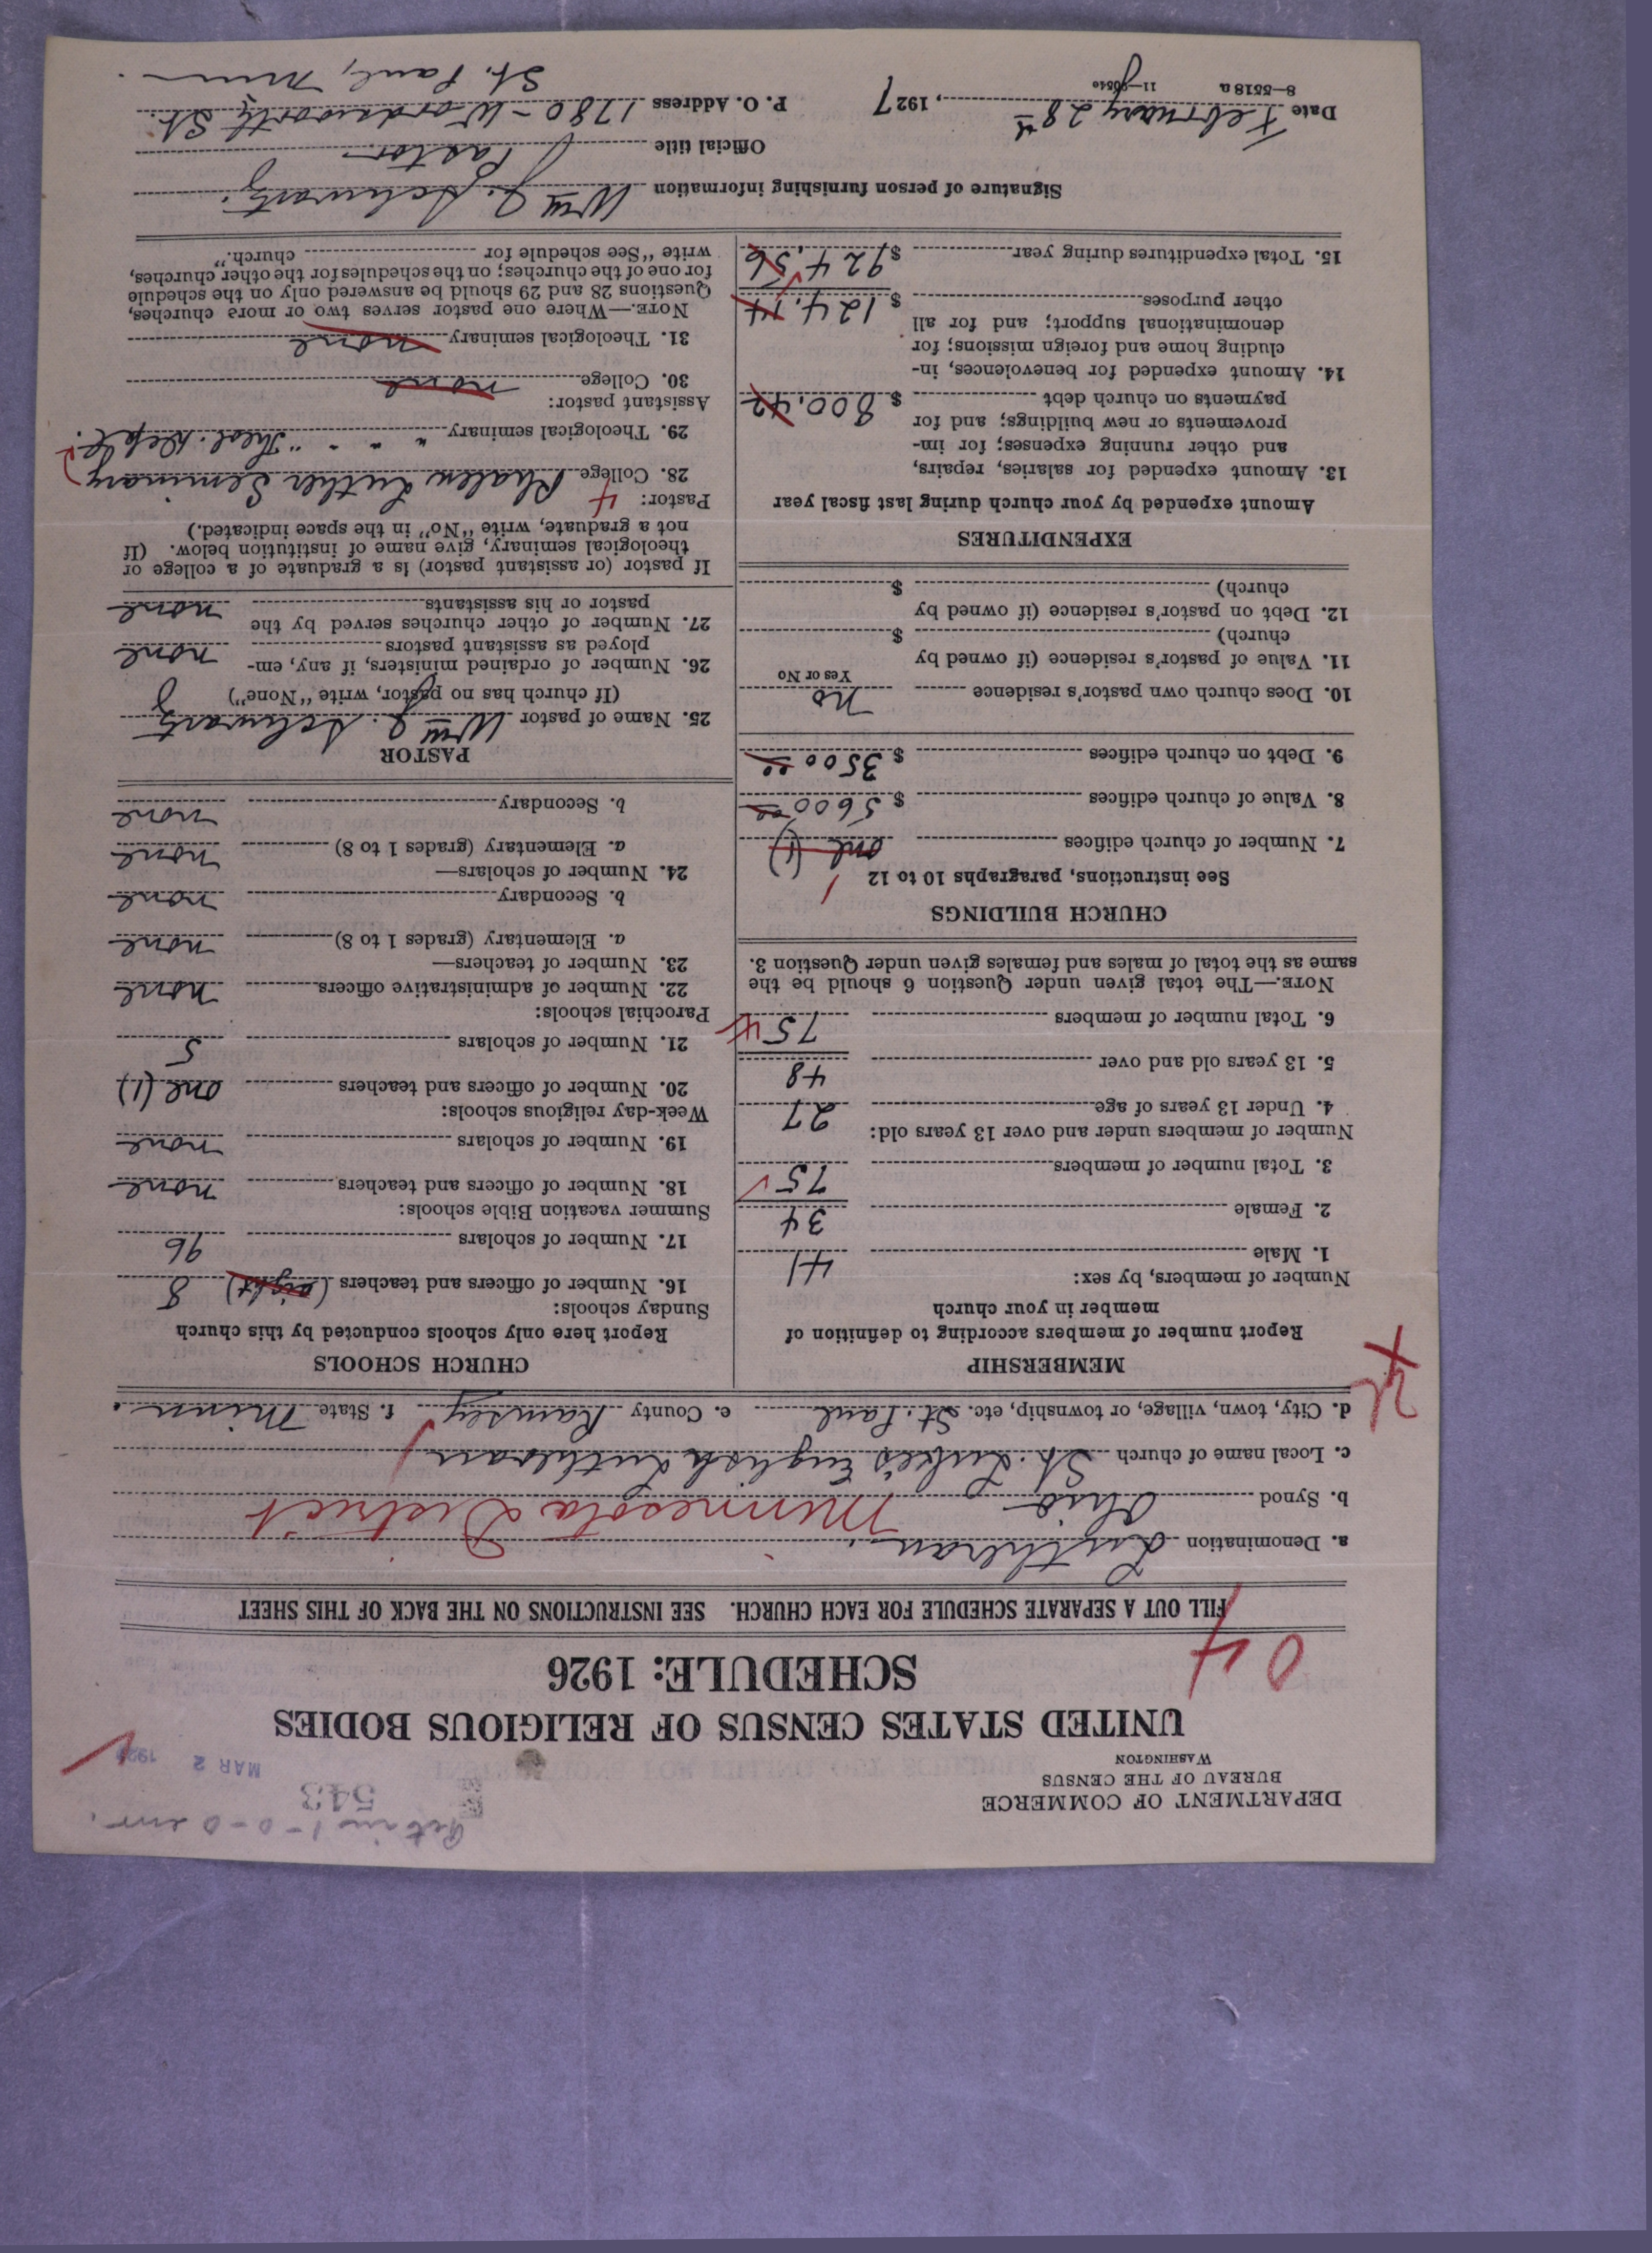 DEPARTMENT OF COMMERCE
BUREAU OF THE CENSUS
WASHINGTON
543
MAR 2 1927
UNITED STATES CENSUS OF RELIGIOUS BODIES
SCHEDULE: 1926
04
FILL OUT A SEPARATE SCHEDULE FOR EACH CHURCH. SEE INSTRUCTIONS ON THE BACK OF THIS SHEET
a. Denomination Lutheran
b. Synod Ohio Minnesota District
c. Local name of church St. Luke's English Lutheran
d. City, town, village, or township, etc. St. Paul e. County Ramsey f. State Minn.
MEMBERSHIP
Report number of members according to definition of
member in your church
Number of members, by sex:
1. Male 41
2. Female 34
3. Total number of members 75
Number of members under and over 13 years old:
4. Under 13 years of age 27
5. 13 years old and over 48
6. Total number of members 75
NOTE.—The total given under Question 6 should be the
same as the total of males and females given under Question 3.
CHURCH BUILDINGS
See instructions, paragraphs 10 to 12
1
7. Number of church edifices one (1)
8. Value of church edifices $ 5600 00
9. Debt on church edifices $ 3500 00
10. Does church own pastor's residence no
Yes or No
11. Value of pastor's residence (if owned by
church) $
12. Debt on pastor's residence (if owned by
church) $
EXPENDITURES
Amount expended by your church during last fiscal year
13. Amount expended for salaries, repairs,
and other running expenses; for im-
provements or new buildings; and for
payments on church debt $ 800.42
14. Amount expended for benevolences, in-
cluding home and foreign missions; for
denominational support; and for all
other purposes $ 124.14
15. Total expenditures during year $ 924.56
CHURCH SCHOOLS
Report here only schools conducted by this church
Sunday schools:
16. Number of officers and teachers (eight) 8
17. Number of scholars 96
Summer vacation Bible schools:
18. Number of officers and teachers none
19. Number of scholars none
Week-day religious schools:
20. Number of officers and teachers one (1)
21. Number of scholars 5
Parochial schools:
22. Number of administrative officers none
23. Number of teachers—
a. Elementary (grades 1 to 8) none
b. Secondary none
24. Number of scholars—
a. Elementary (grades 1 to 8) none
b. Secondary none
PASTOR
25. Name of pastor Wm J. Schwartz
(If church has no pastor, write "None")
26. Number of ordained ministers, if any, em-
ployed as assistant pastors none
27. Number of other churches served by the
pastor or his assistants none
If pastor (or assistant pastor) is a graduate of a college or
theological seminary, give name of institution below. (If
not a graduate, write "No" in the space indicated.)
Pastor: 4
28. College Phalen Luther Seminary
29. Theological seminary " " " " Theol. Dept.
Assistant pastor:
30. College none
31. Theological seminary none
NOTE.—Where one pastor serves two or more churches,
Questions 28 and 29 should be answered only on the schedule
for one of the churches; on the schedules for the other churches,
write "See schedule for church."
Signature of person furnishing information Wm J. Schwartz
Official title Pastor
Date February 28th, 1927 P. O. Address 1780 - Wordsworth St.
8—5518 a St. Paul, Minn